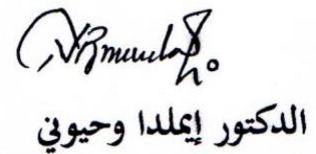 الدكتور إيملدا وحيوني